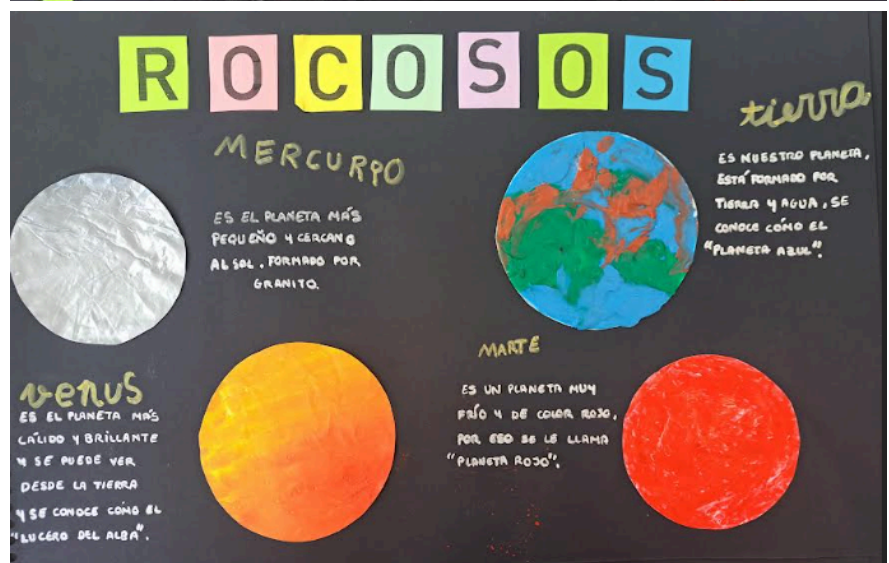 ROCOSOS
MERCURIO
ES EL PLANETA MÁS
PEQUEÑO Y CERCANO
AL SOL. FORMADO POR
GRANITO.
tierra
ES NUESTRO PLANETA,
ESTÁ FORMADO POR
TIERRA Y AGUA, SE
CONOCE CÓMO EL
"PLANETA AZUL".
venus
ES EL PLANETA MÁS
CÁLIDO Y BRILLANTE
Y SE PUEDE VER
DESDE LA TIERRA
Y SE CONOCE CÓMO EL
"LUCERO DEL ALBA".
MARTE
ES UN PLANETA MUY
FRÍO Y DE COLOR ROJO,
POR ESO SE LE LLAMA
"PLANETA ROJO".